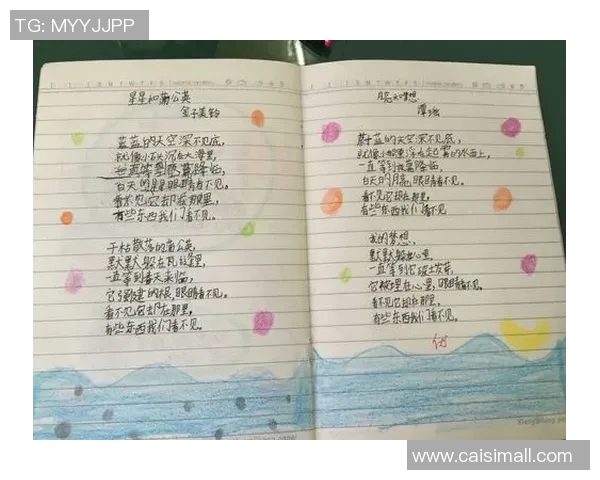 TG: MYYJJPP
星星和蒲公英
金子美铃
蓝蓝的天空深不见底,
就像小石头沉在大海里,
一直等到夜幕降临,
白天的星星眼睛看不见。
看不见它却在那里,
有些东西我们看不见。
干枯散落的蒲公英,
默默躲在瓦缝里,
一直等到春天来临,
它强健的根,眼睛看不见。
看不见它却在那里。
有些东西我们看不见。
月亮和梦想
谭
蔚蓝的天空深不见底,
就像小船漂浮在起雾的水面上,
一直等到夜幕降临,
白天的月亮,眼睛看不见。
看不见它却在那里
有些东西我们看不见
我的梦想,
默默躲在心里,
一直等到它破土发芽,
它被埋在心里,眼睛看不见。
看不见它却在那里,
有些东西我们看不见。
优
www.caisimall.com